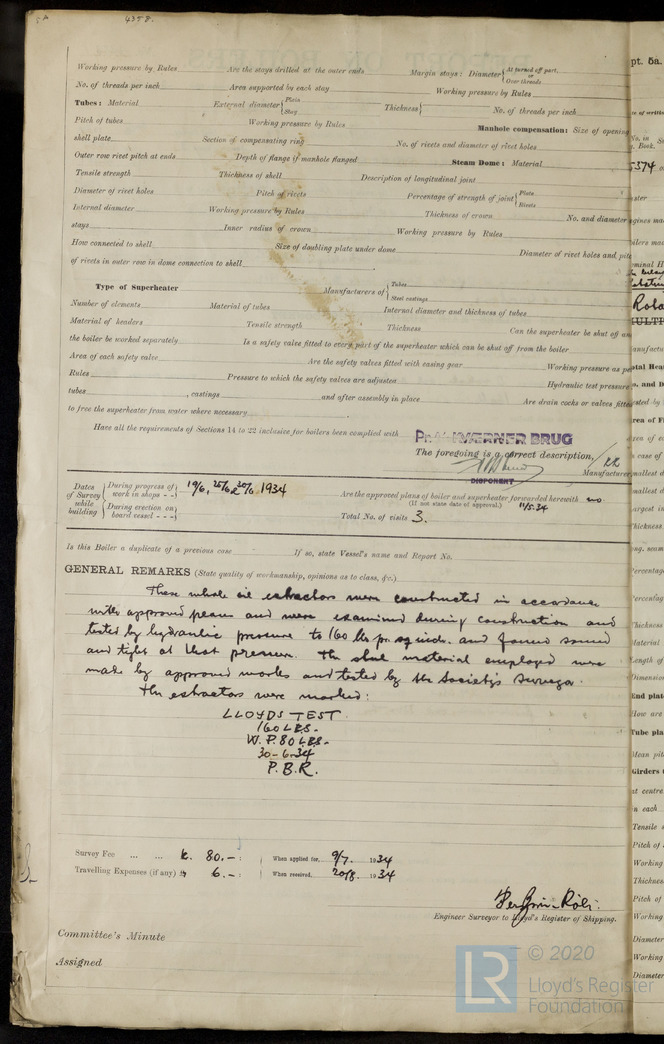 4358.
Working pressure by Rules Are the stays drilled at the outer ends Margin stays: Diameter { At turned off part, or Over threads
No. of threads per inch Area supported by each stay Working pressure by Rules
Tubes: Material External diameter { Plain Stay Thickness { No. of threads per inch
Pitch of tubes Working pressure by Rules Manhole compensation: Size of opening
shell plate Section of compensating ring No. of rivets and diameter of rivet holes
Outer row rivet pitch at ends Depth of flange if manhole flanged Steam Dome: Material
Tensile strength Thickness of shell Description of longitudinal joint
Diameter of rivet holes Pitch of rivets Percentage of strength of joint { Plate Rivets
Internal diameter Working pressure by Rules Thickness of crown No. and diameter
stays Inner radius of crown Working pressure by Rules
How connected to shell Size of doubling plate under dome Diameter of rivet holes and pitc
of rivets in outer row in dome connection to shell
Type of Superheater Manufacturers of { Tubes Steel castings
Number of elements Material of tubes Internal diameter and thickness of tubes
Material of headers Tensile strength Thickness Can the superheater be shut off an
the boiler be worked separately Is a safety valve fitted to every part of the superheater which can be shut off from the boiler
Area of each safety valve Are the safety valves fitted with easing gear Working pressure as pe
Rules Pressure to which the safety valves are adjusted Hydraulic test pressure
tubes , castings and after assembly in place Are drain cocks or valves fitte
to free the superheater from water where necessary
Have all the requirements of Sections 14 to 22 inclusive for boilers been complied with
KVÆRNER BRUG
The foregoing is a correct description,
Manufacturer
DISPONENT
Dates of Survey while building { During progress of work in shops - - { During erection on board vessel - - - 19/6, 25/6 & 30/6 1934
Are the approved plans of boiler and superheater forwarded herewith no
(If not state date of approval.) 11/5.34
Total No. of visits 3.
Is this Boiler a duplicate of a previous case If so, state Vessel's name and Report No.
GENERAL REMARKS (State quality of workmanship, opinions as to class, &c.)
These whale oil extractors were constructed in accordance
with approved plans and were examined during construction and
tested by hydraulic pressure to 160 lbs pr. sq. inch. and found sound
and tight at that pressure. The steel material employed were
made by approved works and tested by the Society's Surveyor.
The extractors were marked:
LLOYDS TEST
160 LBS.
W.P. 80 LBS.
30-6-34
P.B.R.
Survey Fee ... ... Kr. 80.- : When applied for, 9/7. 1934
Travelling Expenses (if any) 6.- : When received, 20/8. 1934
Engineer Surveyor to Lloyd's Register of Shipping.
Committee's Minute
Assigned
© 2020
Lloyd's Register
Foundation
LR